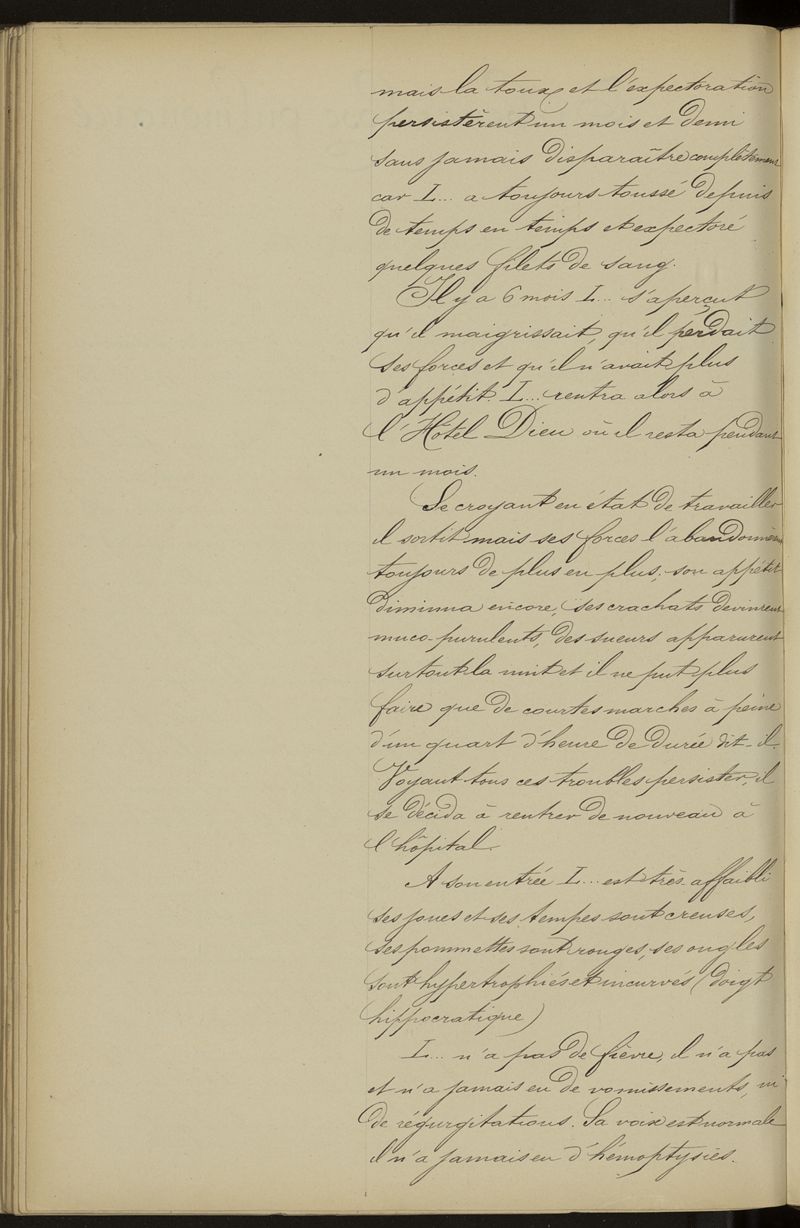 mais la toux et l'expectoration
persistèrent un mois et demi
sans jamais disparaître complètement
car L... a toujours toussé depuis
de temps en temps et expectoré
quelques filets de sang.
Il y a 6 mois L... s'aperçut
qu'il maigrissait, qu'il perdait
ses forces et qu'il n'avait plus
d'appétit. L... rentra alors à
l'Hôtel Dieu où il resta pendant
un mois.
Se croyant en état de travailler
il sortit mais ses forces l'abandonnèrent
toujours de plus en plus, son appétit
diminua encore, ses crachats devinrent
muco-purulents, des sueurs apparurent
surtout la nuit et il ne put plus
faire que de courtes marches à peine
d'un quart d'heure de durée dit-il.
Voyant tous ces troubles persister, il
se décida à rentrer de nouveau à
l'hôpital.
A son entrée L... est très affaibli
ses joues et ses tempes sont creuses,
ses pommettes sont rouges, ses ongles
sont hypertrophiés et incurvés (doigt
hippocratique)
L... n'a pas de fièvre, il n'a pas
et n'a jamais eu de vomissements, ni
de régurgitations. Sa voix est normale
il n'a jamais eu d'hémoptysies.